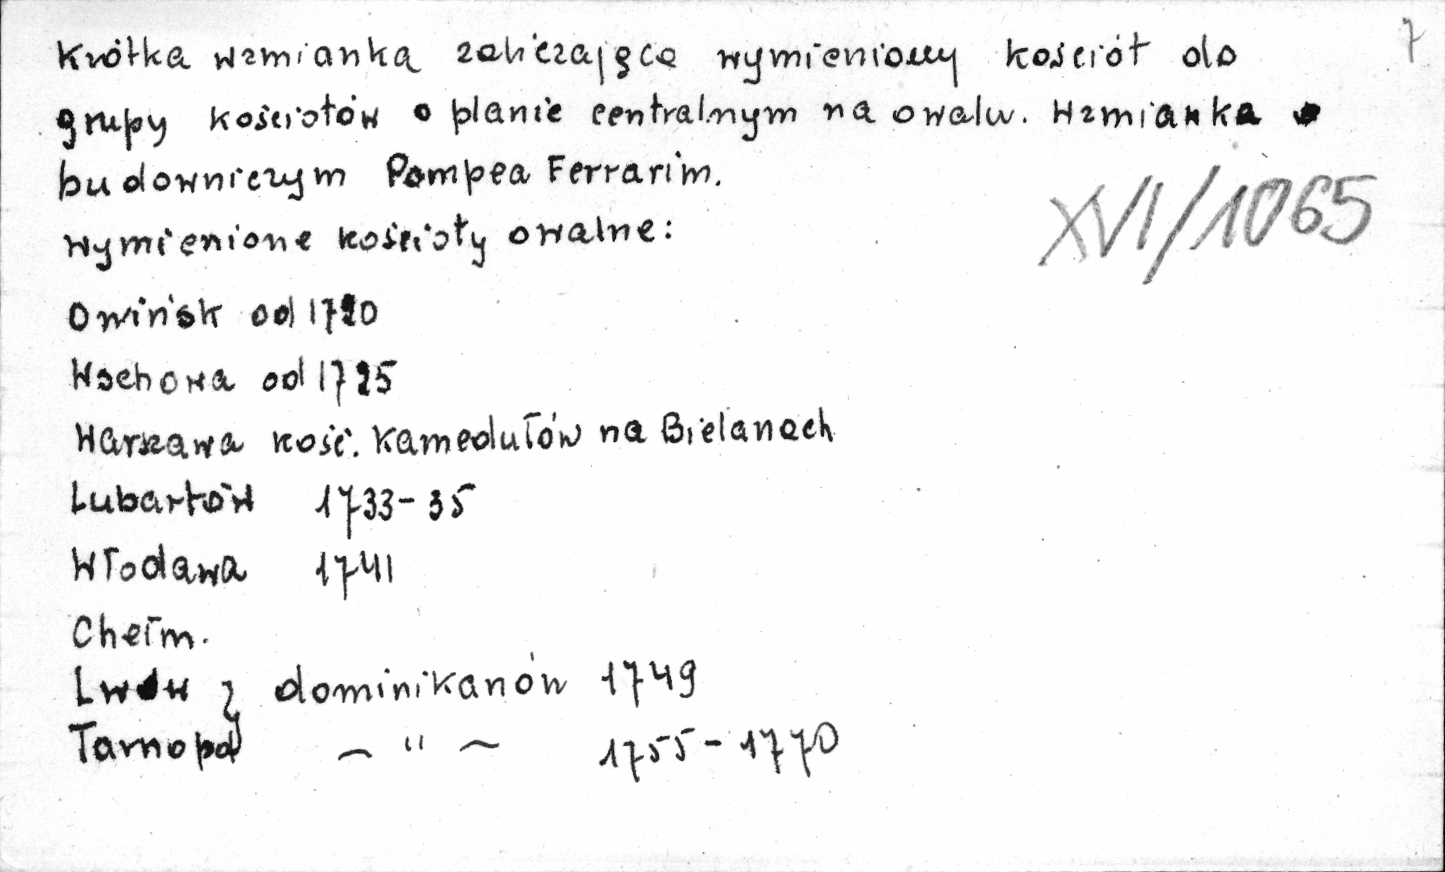 7
Krótka wzmianka zaliczająca wymieniony kościół do
grupy kościołów o planie centralnym na owalu. Wzmianka o
budowniczym Pompea Ferrarim.
XVI/1065
wymienione kościoły owalne:
Owińsk od 1720
Wschowa od 1725
Warszawa kość. Kamedułów na Bielanach
Lubartów 1733-35
Włodawa 1741
Chełm.
Lwów } dominikanów 1749
Tarnopol — " — 1755-1770